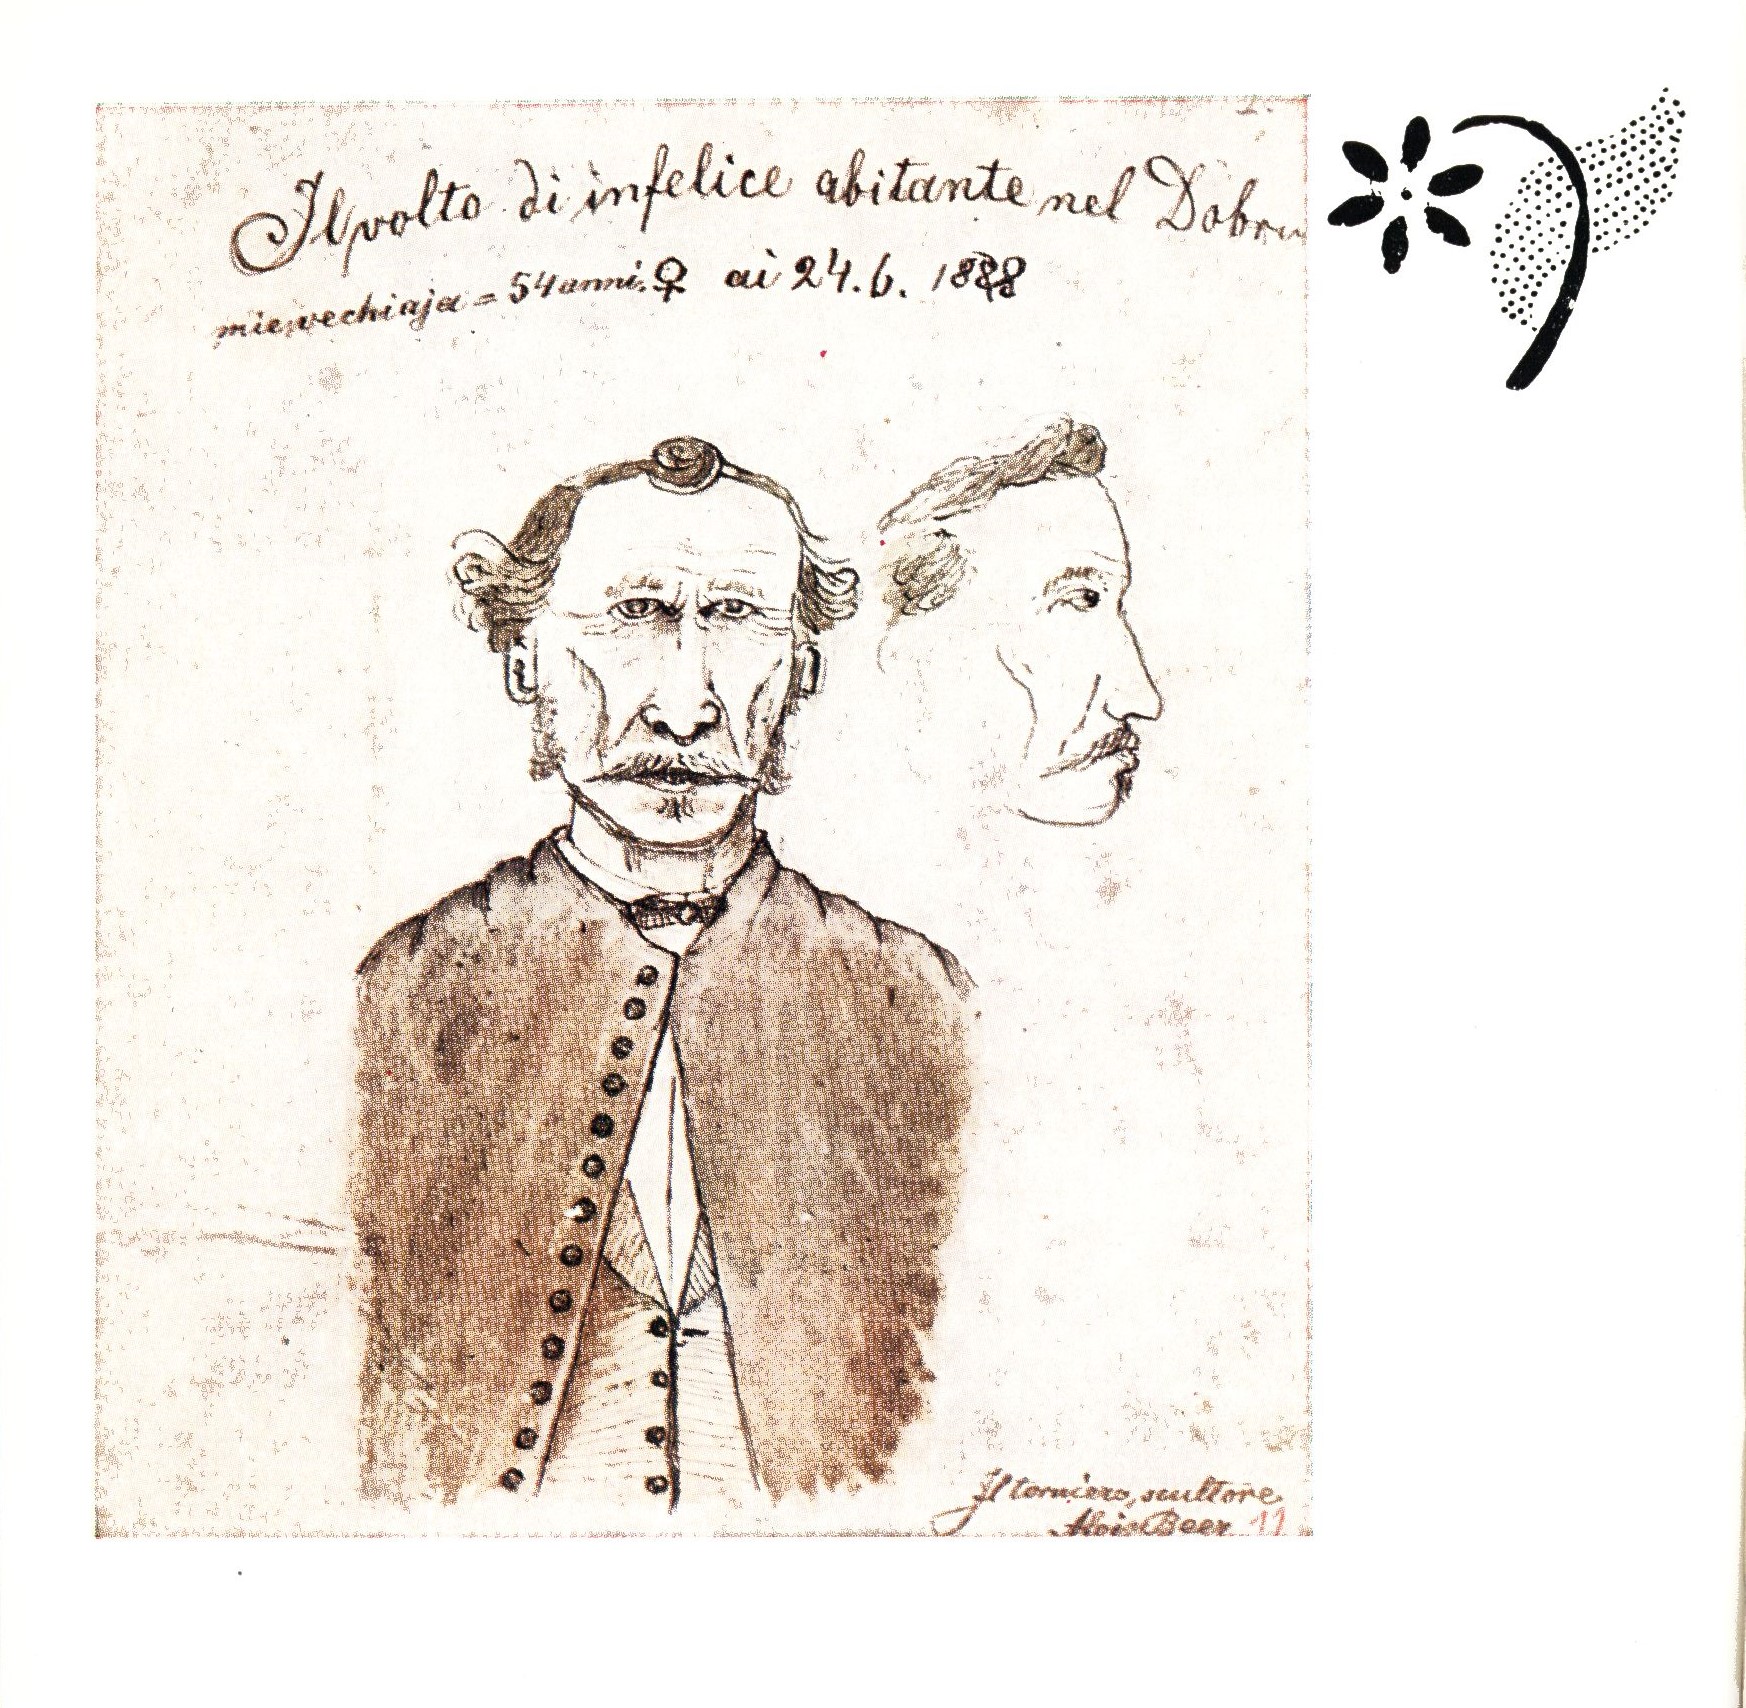 Il volto di infelice abitante nel Dobru
mie vechiaja = 54 anni. ♀ ai 24.6. 1888
Il torniero, scultore
Alois Beer 11